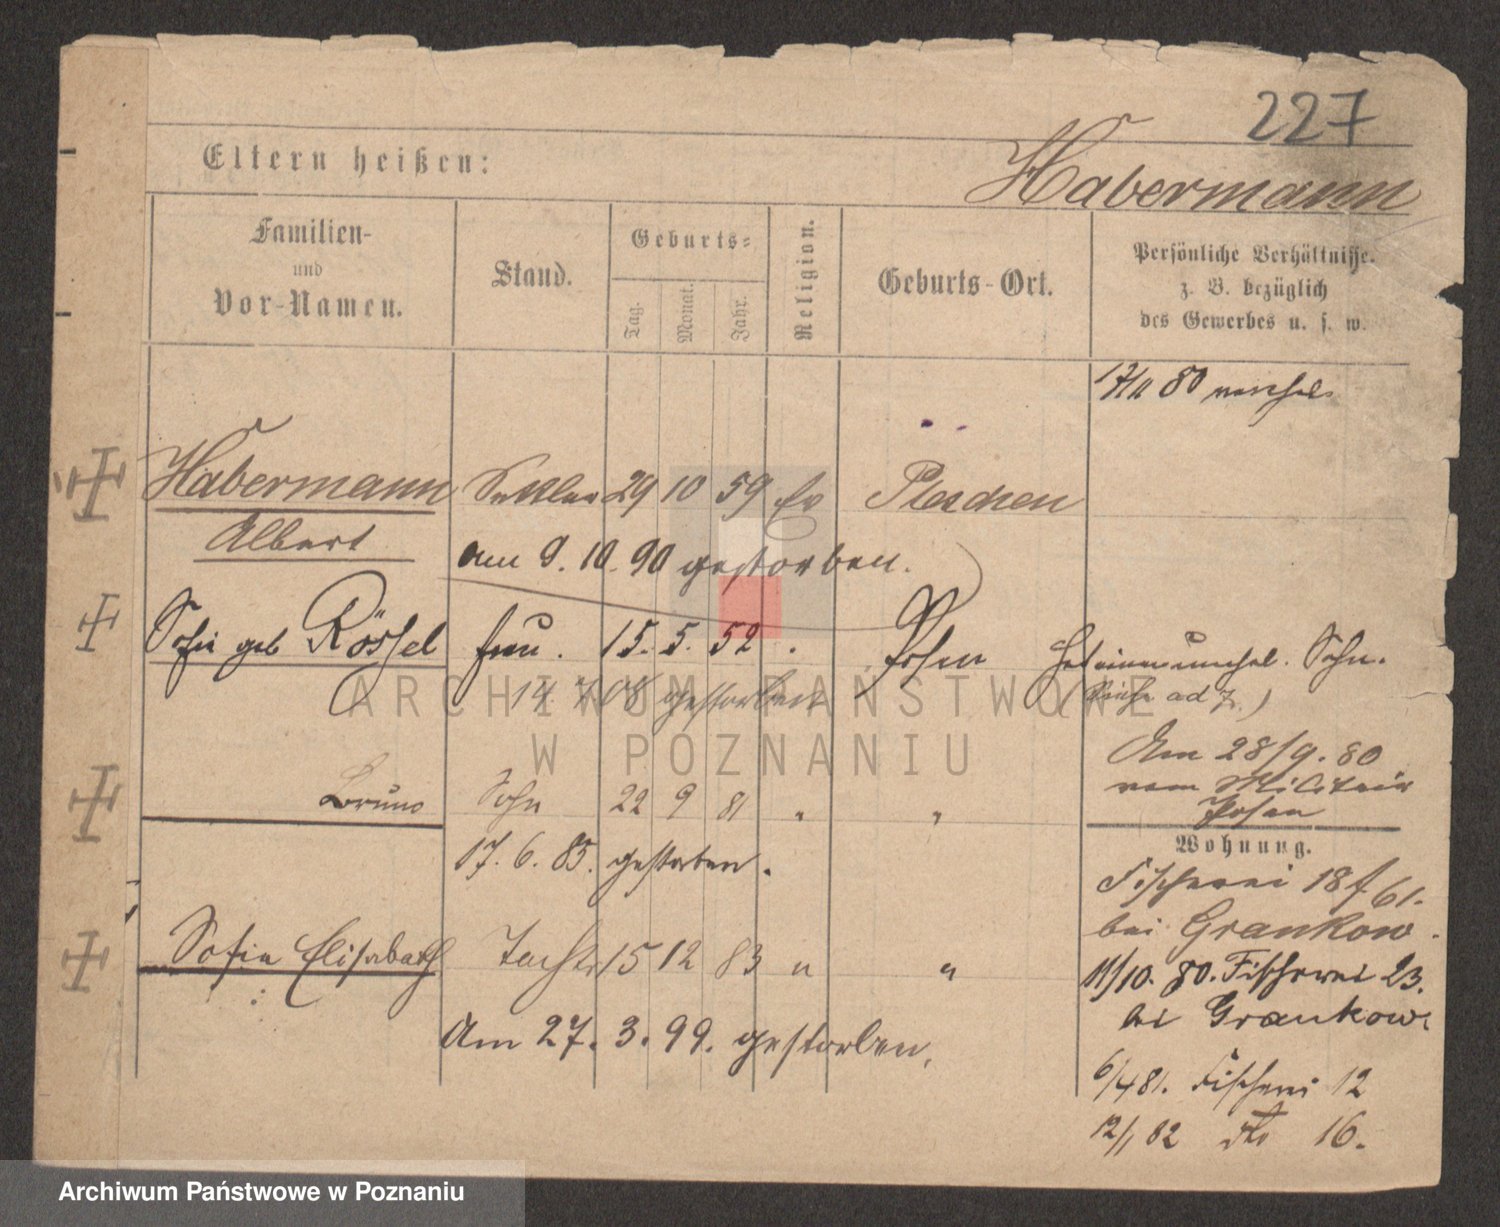 227
Eltern heißen:
Habermann
Familien-
und
Vor-Namen.
Stand.
Geburts-
Tag.
Monat.
Jahr.
Religion.
Geburts-Ort.
Persönliche Verhältnisse.
z. B. bezüglich
des Gewerbes u. s. w.
80
Habermann Sattler 29 10 59 Ev Pleschen
Albert
am 9. 10. 90 gestorben.
Sofie geb Rössel Frau. 15. 5. 52 Posen Hat einen unehel. Sohn.
14. 7. 08 gestorben
ad 7.)
Am 28/9. 80
vom Militair
Posen
Bruno Sohn 22 9 81 " "
17. 6. 85. gestorben.
Wohnung.
Fischerei 18 f 61.
bei Grankow.
Sofie Elisabeth Tochter 15 12 83 " "
11/10. 80. Fischerei 23.
bei Grankow.
Am 27. 3. 99. gestorben.
6/4 81. Fischerei 12
12/1 82 dto 16.
ARCHIWUM PAŃSTWOWE
W POZNANIU
Archiwum Państwowe w Poznaniu